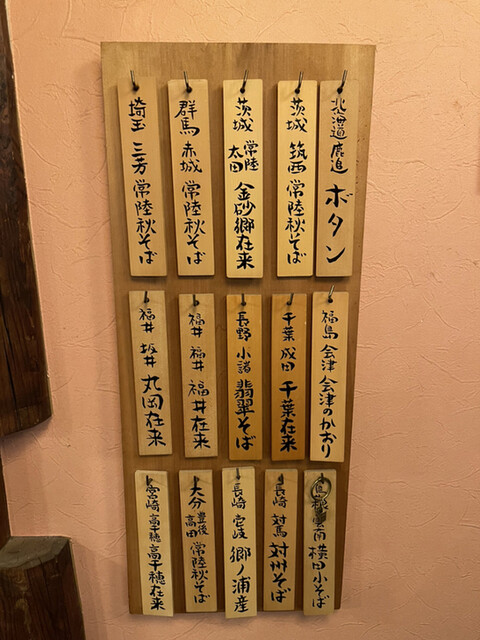 北海道 鹿追 ボタン
茨城 筑西 常陸秋そば
茨城 常陸太田 金砂郷在来
群馬 赤城 常陸秋そば
埼玉 三芳 常陸秋そば
福島 会津 会津のかおり
千葉 成田 千葉在来
長野 小諸 翡翠そば
福井 福井 福井在来
福井 坂井 丸岡在来
島根 雲南 横田小そば
長崎 対馬 対州そば
長崎 壱岐 郷ノ浦産
大分 豊後高田 常陸秋そば
宮崎 高千穂 高千穂在来